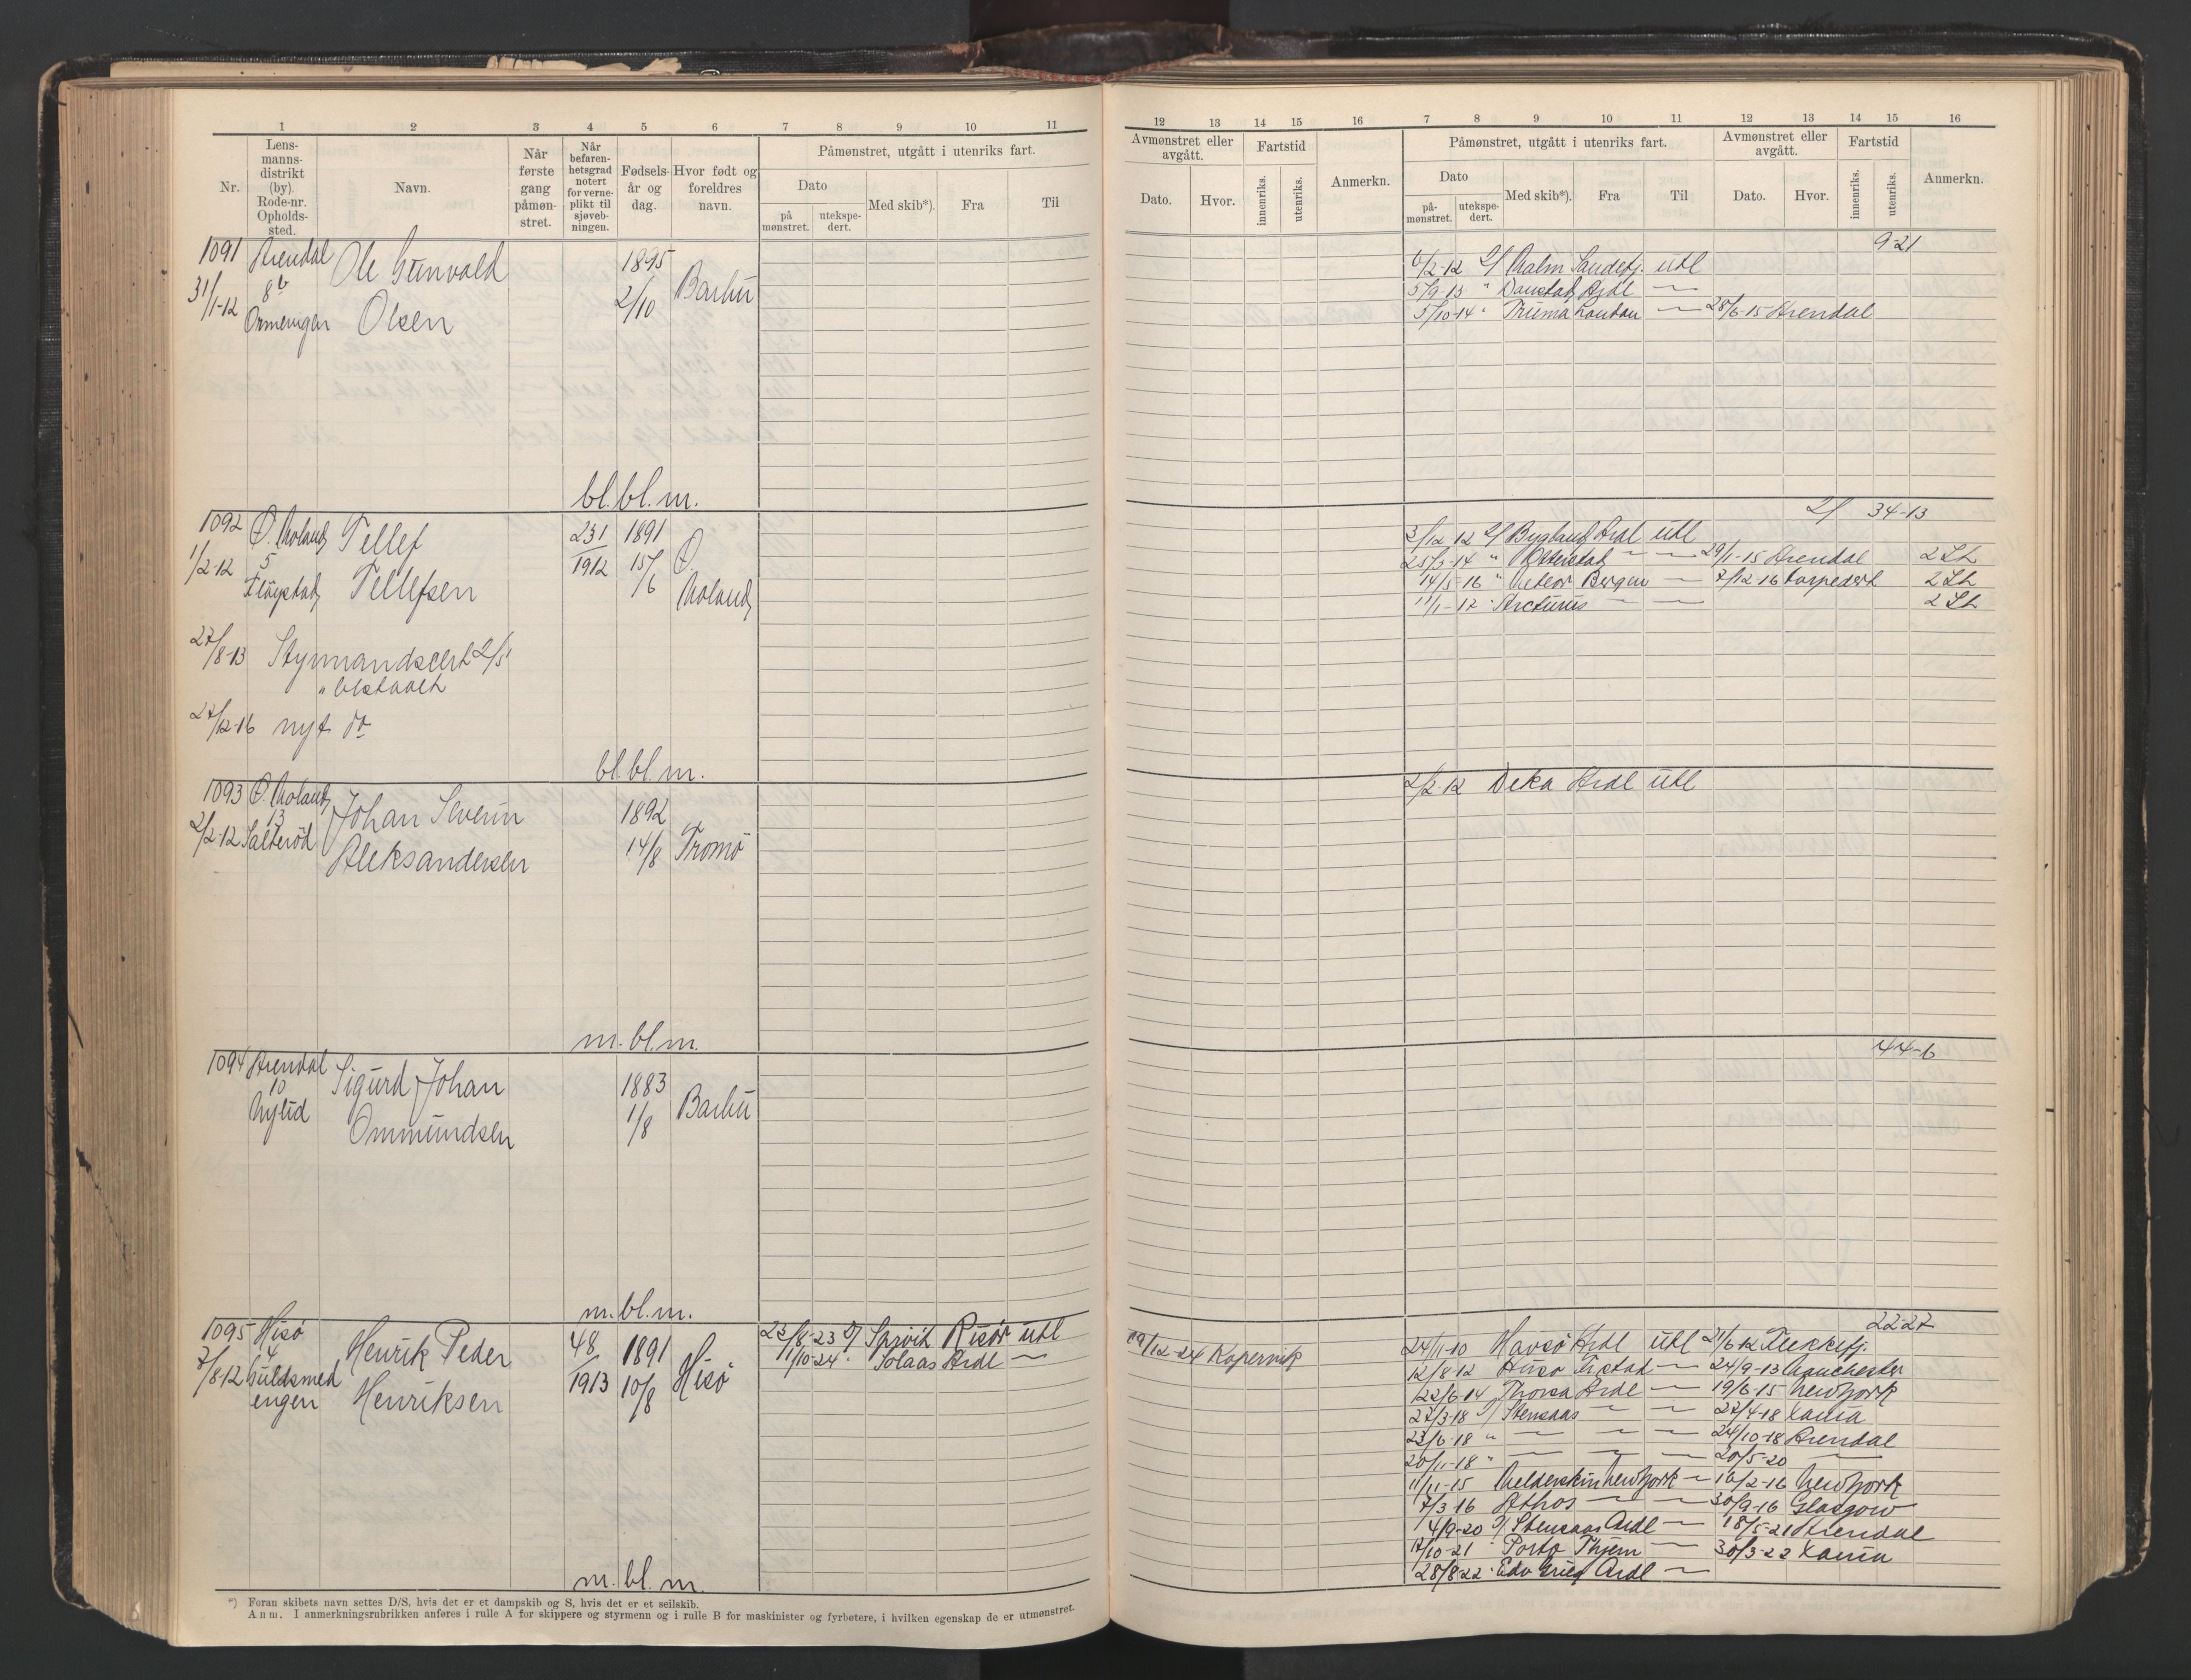 1 2 3 4 5 6 7 8 9 10 11
Nr.
Lens-
manns-
distrikt
(by).
Rode-nr.
Opholds-
sted.
Navn.
Når
første
gang
påmøn-
stret.
Når
befaren-
hetsgrad
notert
for verne-
plikt til
sjøveb-
ningen.
Fødsels-
år og
dag.
Hvor født og
foreldres
navn.
Påmønstret, utgått i utenriks fart.
Dato
på
mønstret.
utekspe-
dert.
Med skib*).
Fra
Til
1091 Arendal Ole Gunvald 1895
31/1-12 8b 2/10 Barbu
Ormevigen Olsen
bl. bl. m.
1092 Ø. Moland Tellef 231 1891
1/2-12 5 1912 15/6 Ø.
Fløystad Tellefsen Moland
27/8-13 Styrmandscert 2/5
" 
27/12-16 nyt do
bl. bl. m.
1093 Ø. Moland Johan Severin 1892
2/2-12 13
Salterød Aleksandersen 14/8 Tromø
m. bl. m.
1094 Arendal Sigurd Johan 1883
10
Nylid Ommundsen 1/8 Barbu
m. bl. m.
1095 Hisø Henrik Peder 48 1891 23/8-23 Risør utl
4
7/8-12 Guldsmed 1913 10/8 Hisø 11/10-24 " Solaas Ardl —
engen Henriksen
m. bl. m.
*) Foran skibets navn settes D/S, hvis det er et dampskib og S, hvis det er et seilskib.
Anm. I anmerkningsrubrikken anføres i rulle A for skippere og styrmenn og i rulle B for maskinister og fyrbøtere, i hvilken egenskap de er utmønstret.
12 13 14 15 16 7 8 9 10 11 12 13 14 15 16
Avmønstret eller
avgått.
Dato.
Hvor.
Fartstid
innenriks.
utenriks.
Anmerkn.
Påmønstret, utgått i utenriks fart.
Dato
på-
mønstret.
utekspe-
dert.
Med skib*).
Fra
Til
Avmønstret eller
avgått.
Dato.
Hvor.
Fartstid
innenriks.
utenriks.
Anmerkn.
9-21
6/2-12 Malm Sandefj. utl
5/9-13 " Daustad Ardl —
5/10-14 " Truma London — 28/6-15 Arendal
34-13
3/12 12 Bygland Ardl utl
25/3-14 " — — 29/1-15 Arendal 2 St
14/5-16 " Meteor Bergen — 7/12-16 torpedert 2 St
11/1-17 " Arcturus — — 2 St
2/2-12 Deka Ardl utl
44-6
22-27
19/12-24 Kopervik
24/11-10 Havsø Ardl utl 21/6-12 Flekkefj.
12/8-12 — 24/9-13 Manchester
22/6-14 Thorsa Ardl — 19/6-15 Newyork
27/3-18 Stensaas — — 27/4-18 Xania
23/6-18 " — — — 24/10-18 Arendal
20/11-18 " — — — 20/5-20 —
11/11-15 Melderskin Newyork — 16/2-16 Newyork
7/3-16 Athos — — 30/9-16 Glasgow
14/9-20 Stensaas Ardl — 18/5-21 Arendal
17/10-21 " Porto — 30/3-22 Xania
28/8-22 " Edv Grieg Ardl —